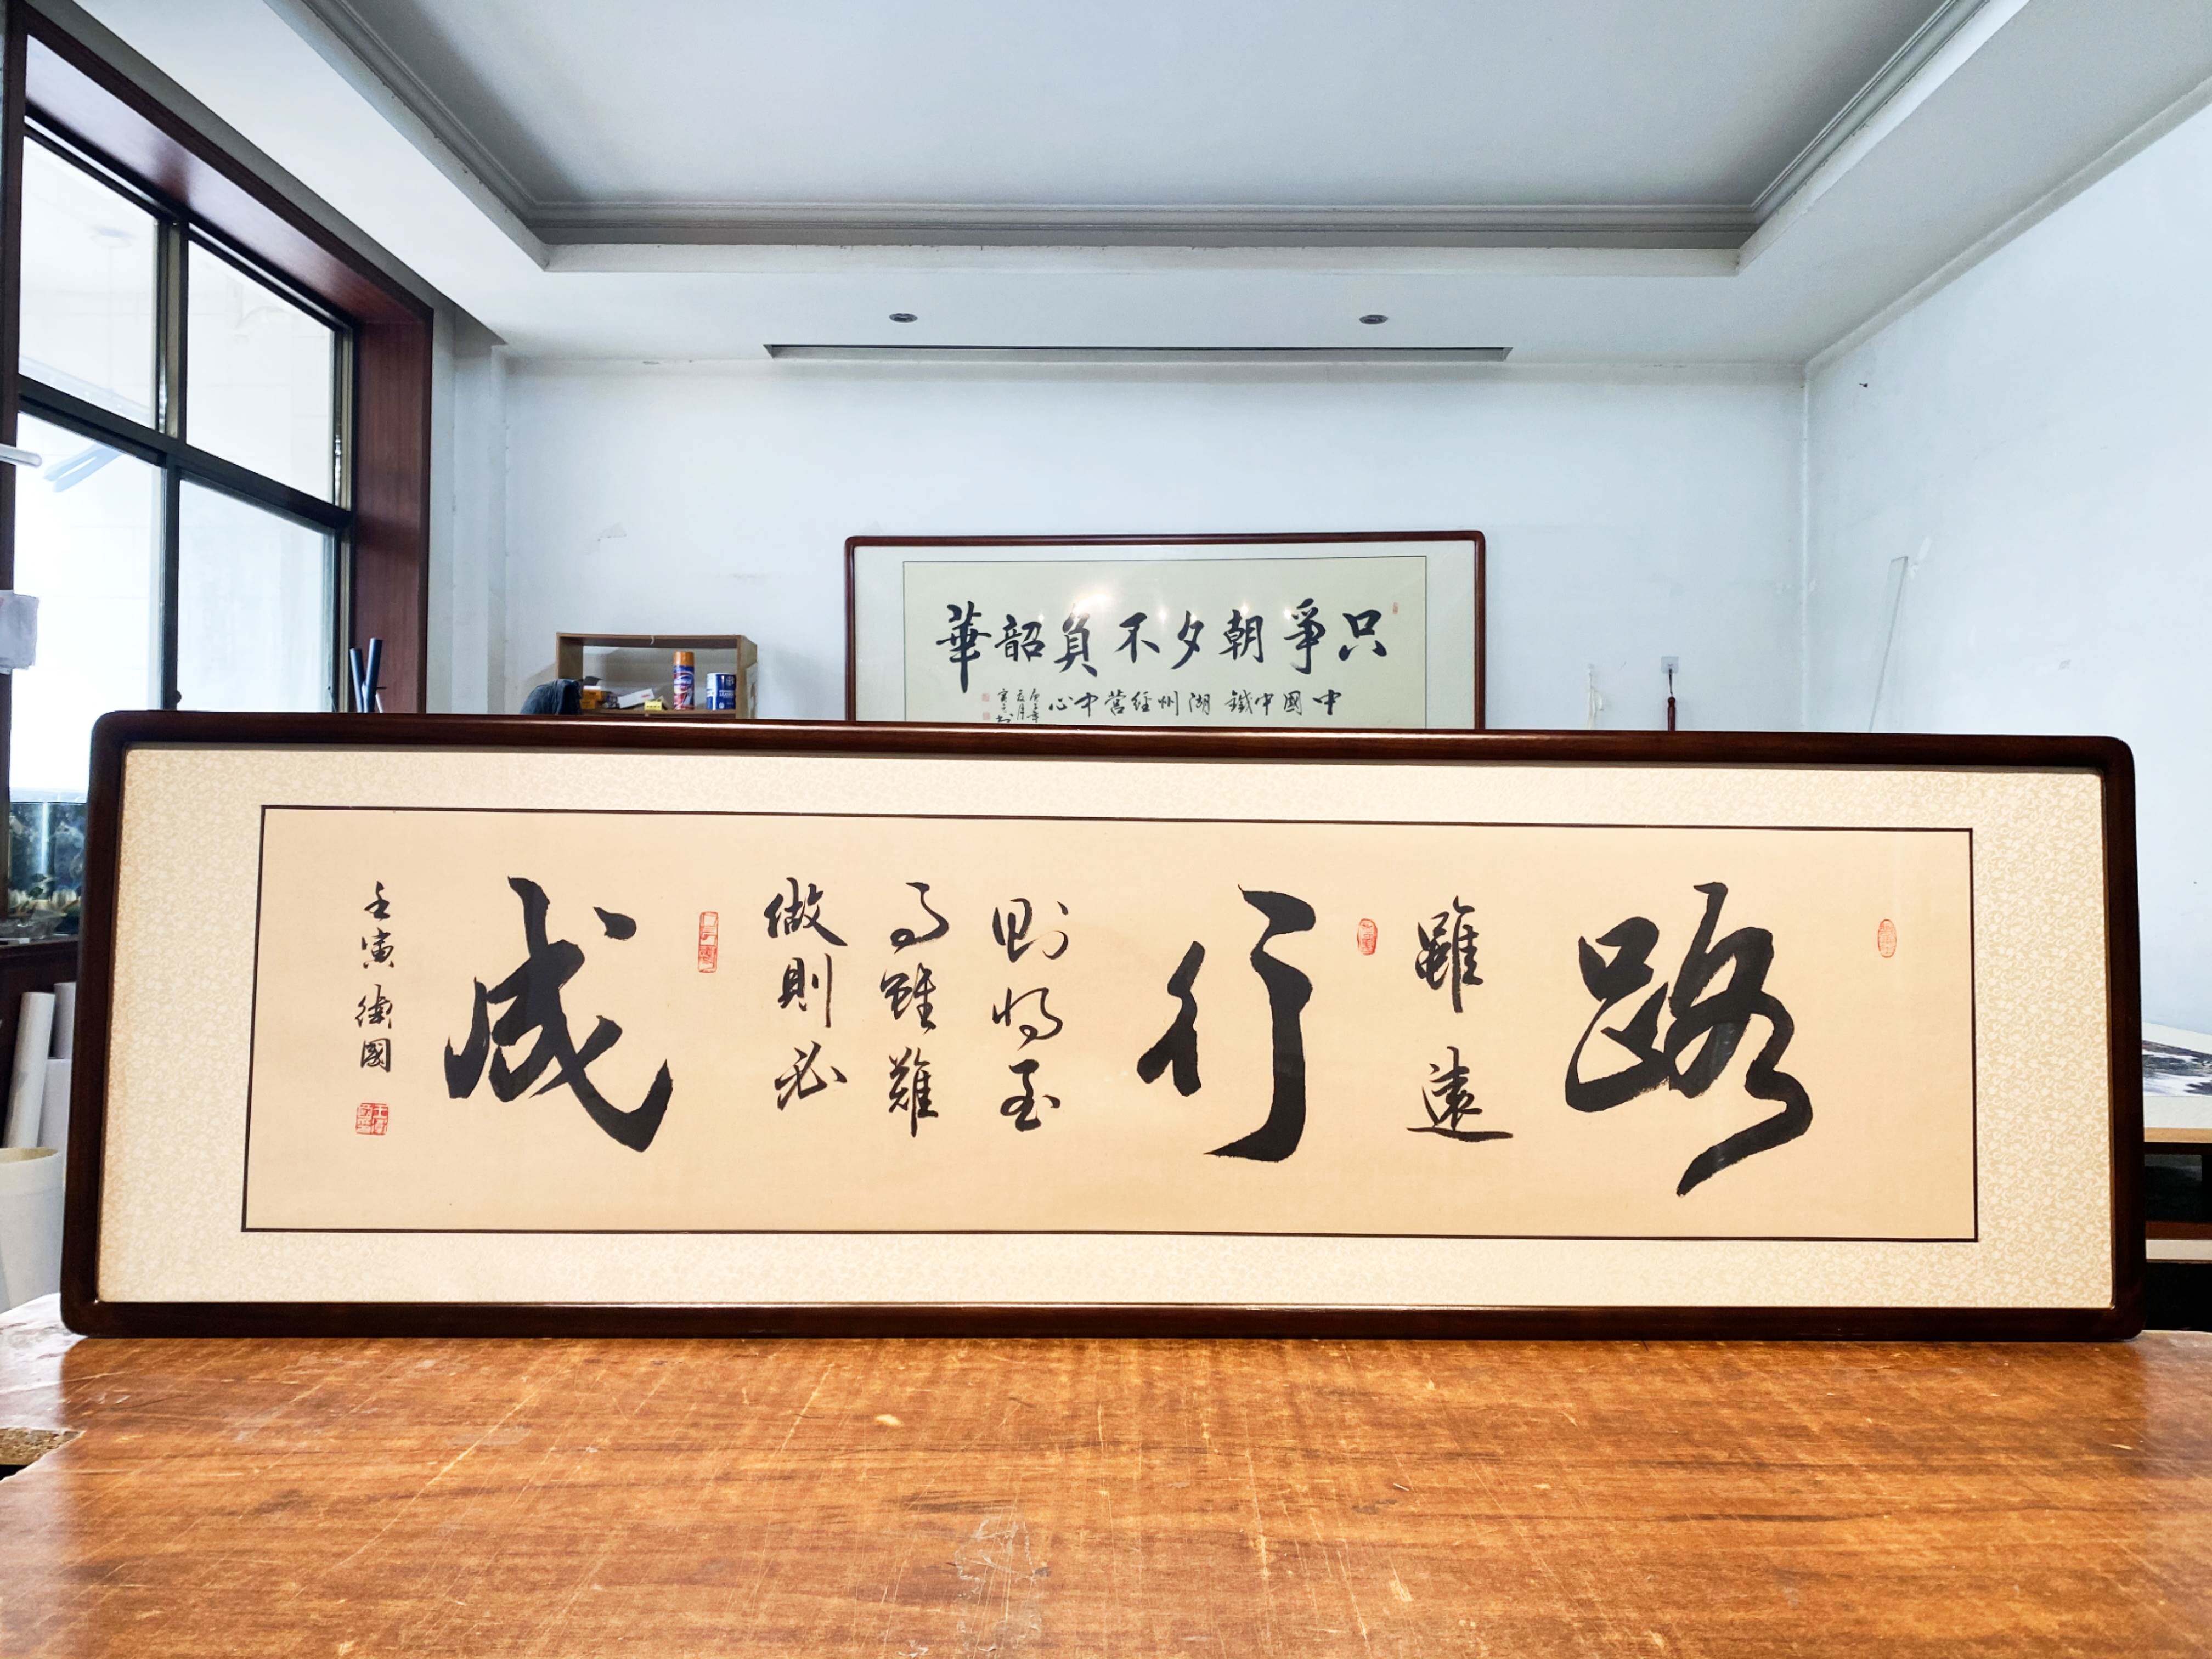 只爭朝夕不負韶華
中國中鐵湖州經營中心
路
雖遠
行
則將至
事雖難
做則必
成
壬寅 衛國